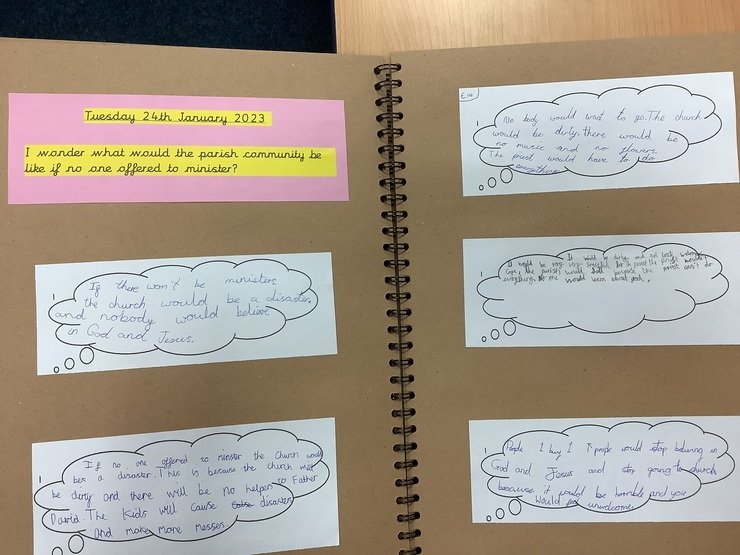 Tuesday 24th January 2023
I wonder what would the parish community be
like if no one offered to minister?
If there won't be ministers
the church would be a disaster
and nobody would believe
in God and Jesus.
If no one offered to minister the Church would
be a disaster. This is because the church
be dirty and there will be no helper to Father
David. The Kids will cause disaster
and make more messes.
Eva
No body would want to go. The church
would be dirty, there would be
no music and no flowers.
The priest would have to do
everything
It would be dirty and not look
It would be very very stressful for
the parish would
everything. No one would learn about god.
People 1 by 1 people would stop believing in
God and Jesus and stop going to church
because it would be horrible and you
would unwelcome